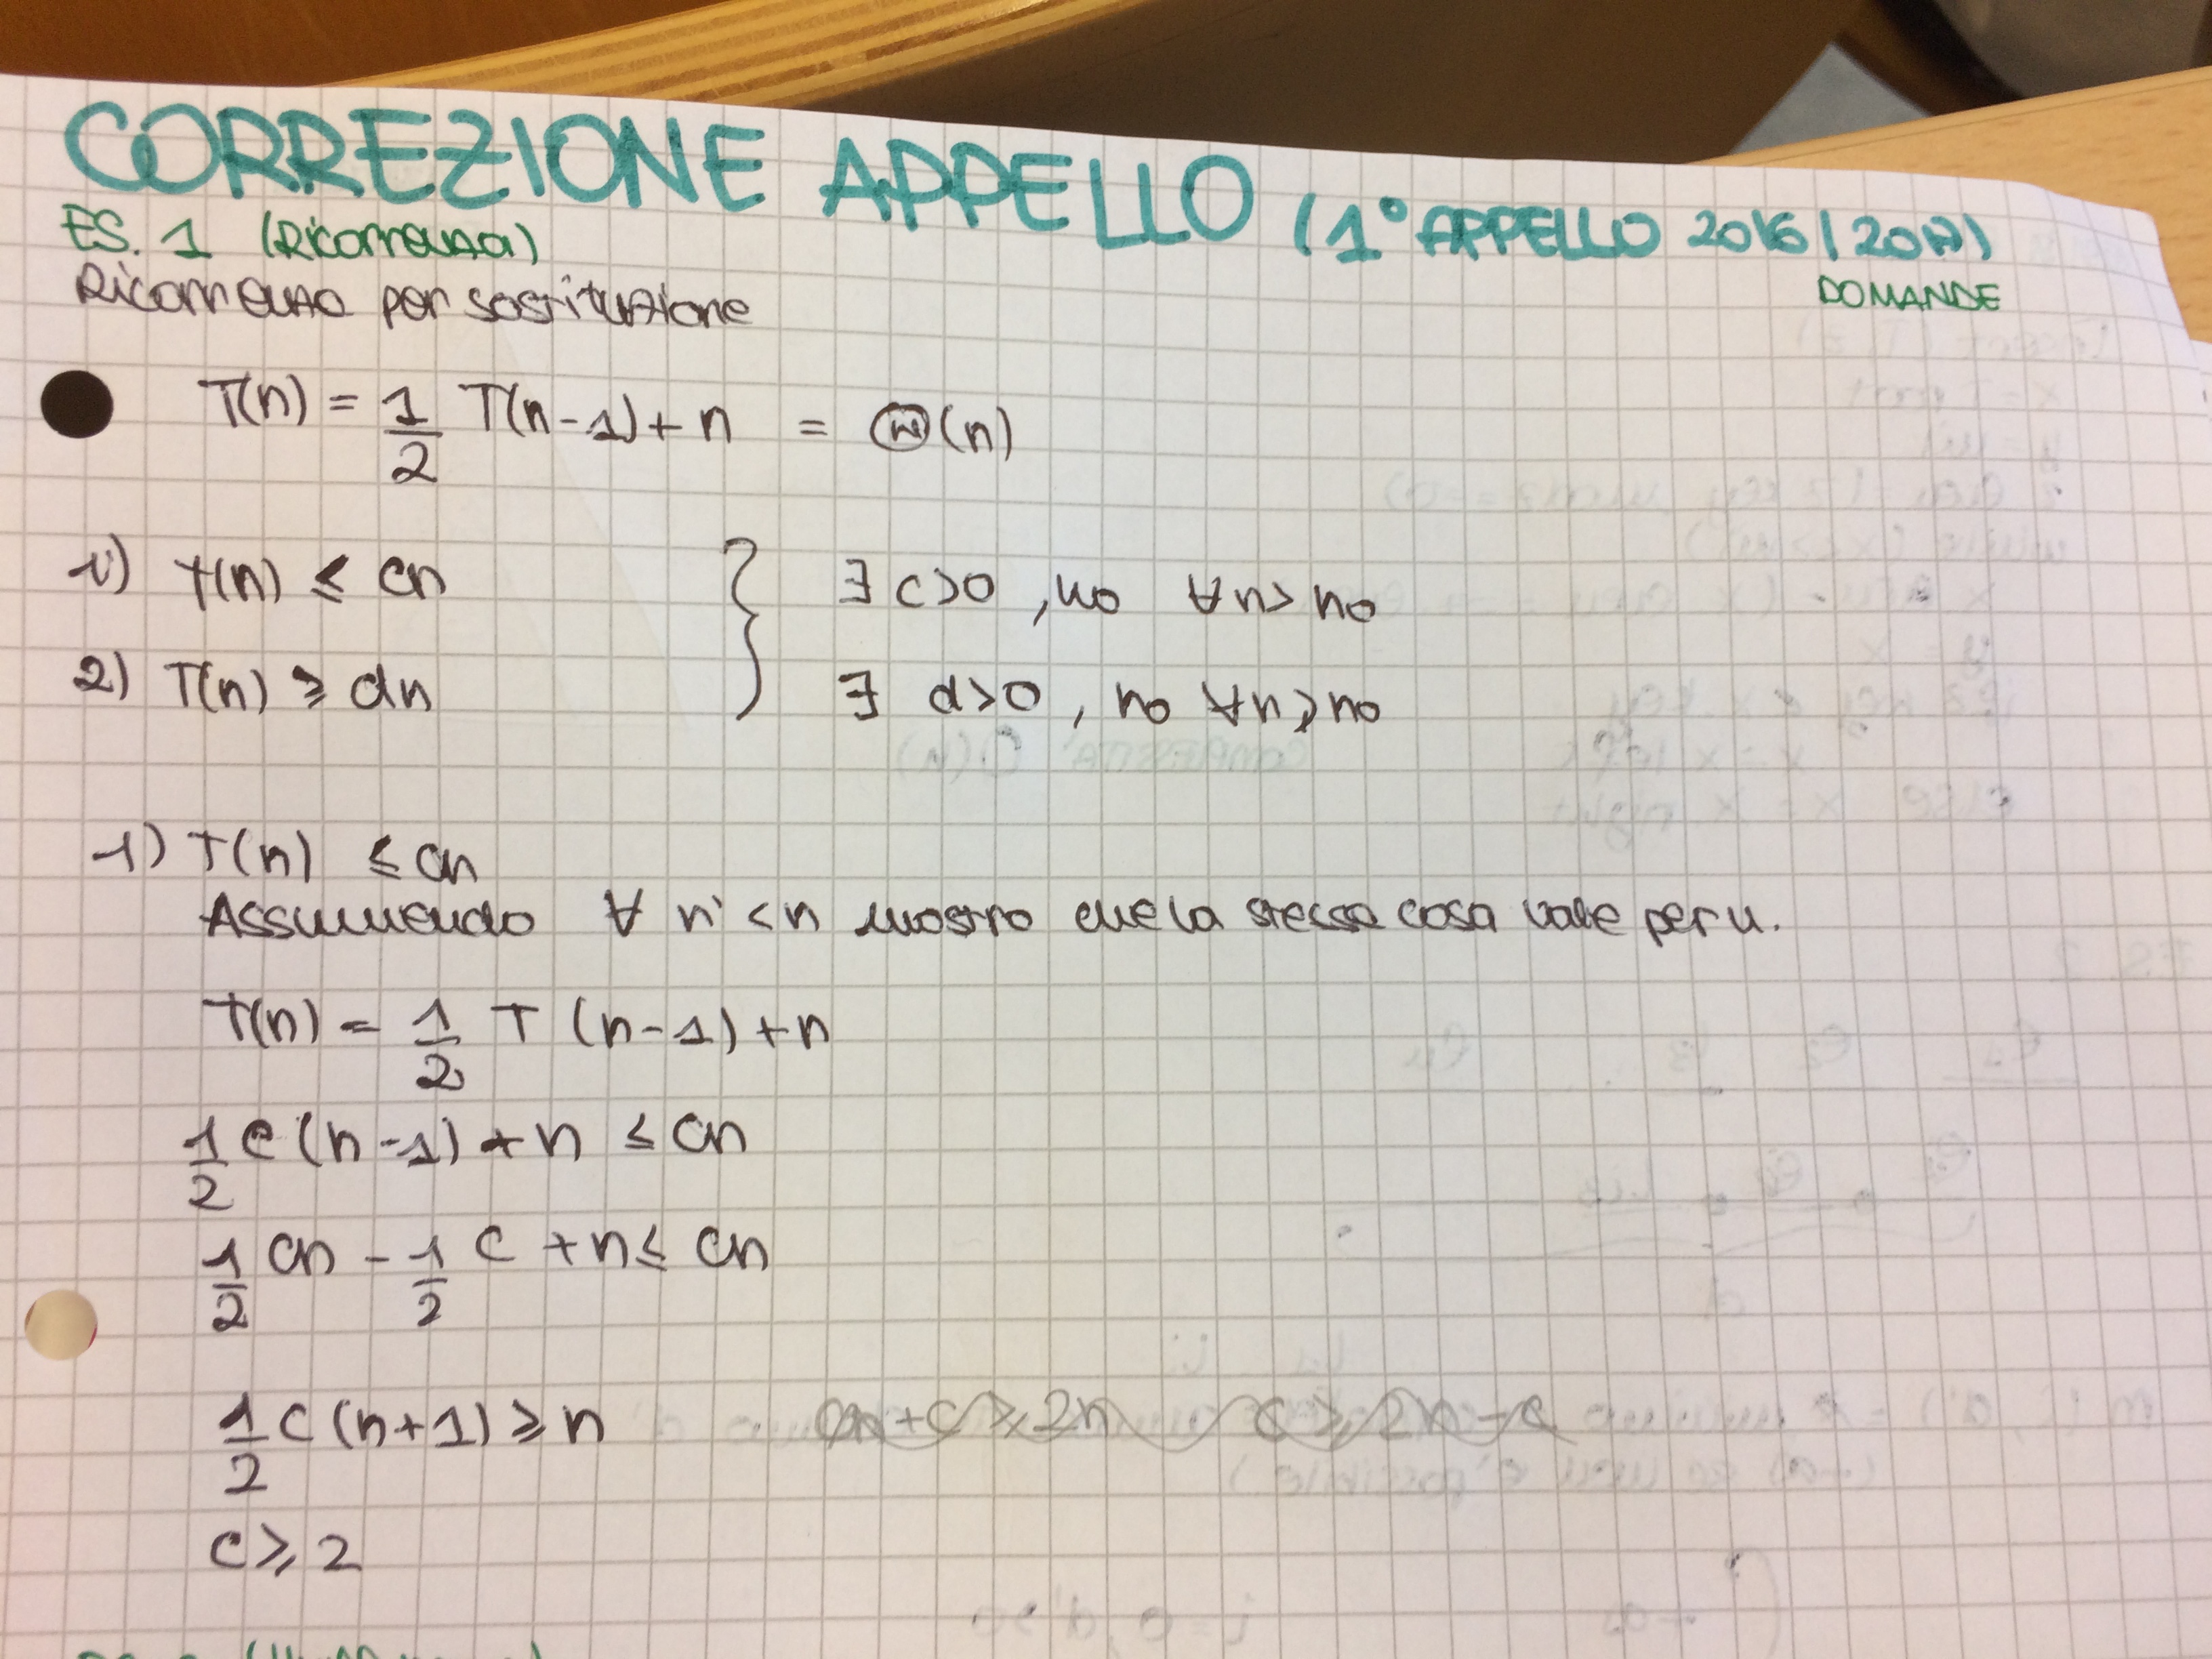 CORREZIONE APPELLO (1° APPELLO 2016/2017)
ES. 1 (Ricorrenza)
DOMANDE
Ricorrenza per sostituzione
T(n) = 1/2 T(n-1) + n = Θ(n)
1) T(n) ≤ cn } ∃ c>0, n0 ∀n> n0
2) T(n) ≥ dn } ∃ d>0, n0 ∀n≥n0
1) T(n) ≤ cn
Assumendo ∀ n' < n mostro che la stessa cosa vale per n.
T(n) = 1/2 T(n-1) + n
1/2 c(n-1) + n ≤ cn
1/2 cn - 1/2 c + n ≤ cn
1/2 c(n+1) ≥ n
c ≥ 2